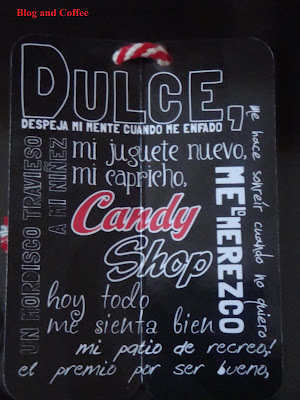 Blog and Coffee
DULCE,
DESPEJA MI MENTE CUANDO ME ENFADO
UN MORDISCO TRAVIESO
A MI NIÑEZ
mi juguete nuevo,
mi capricho,
ME LO MEREZCO
me hace sonreír cuando no quiero
Candy
Shop
hoy todo
me sienta bien
mi patio de recreo!
el premio por ser bueno,